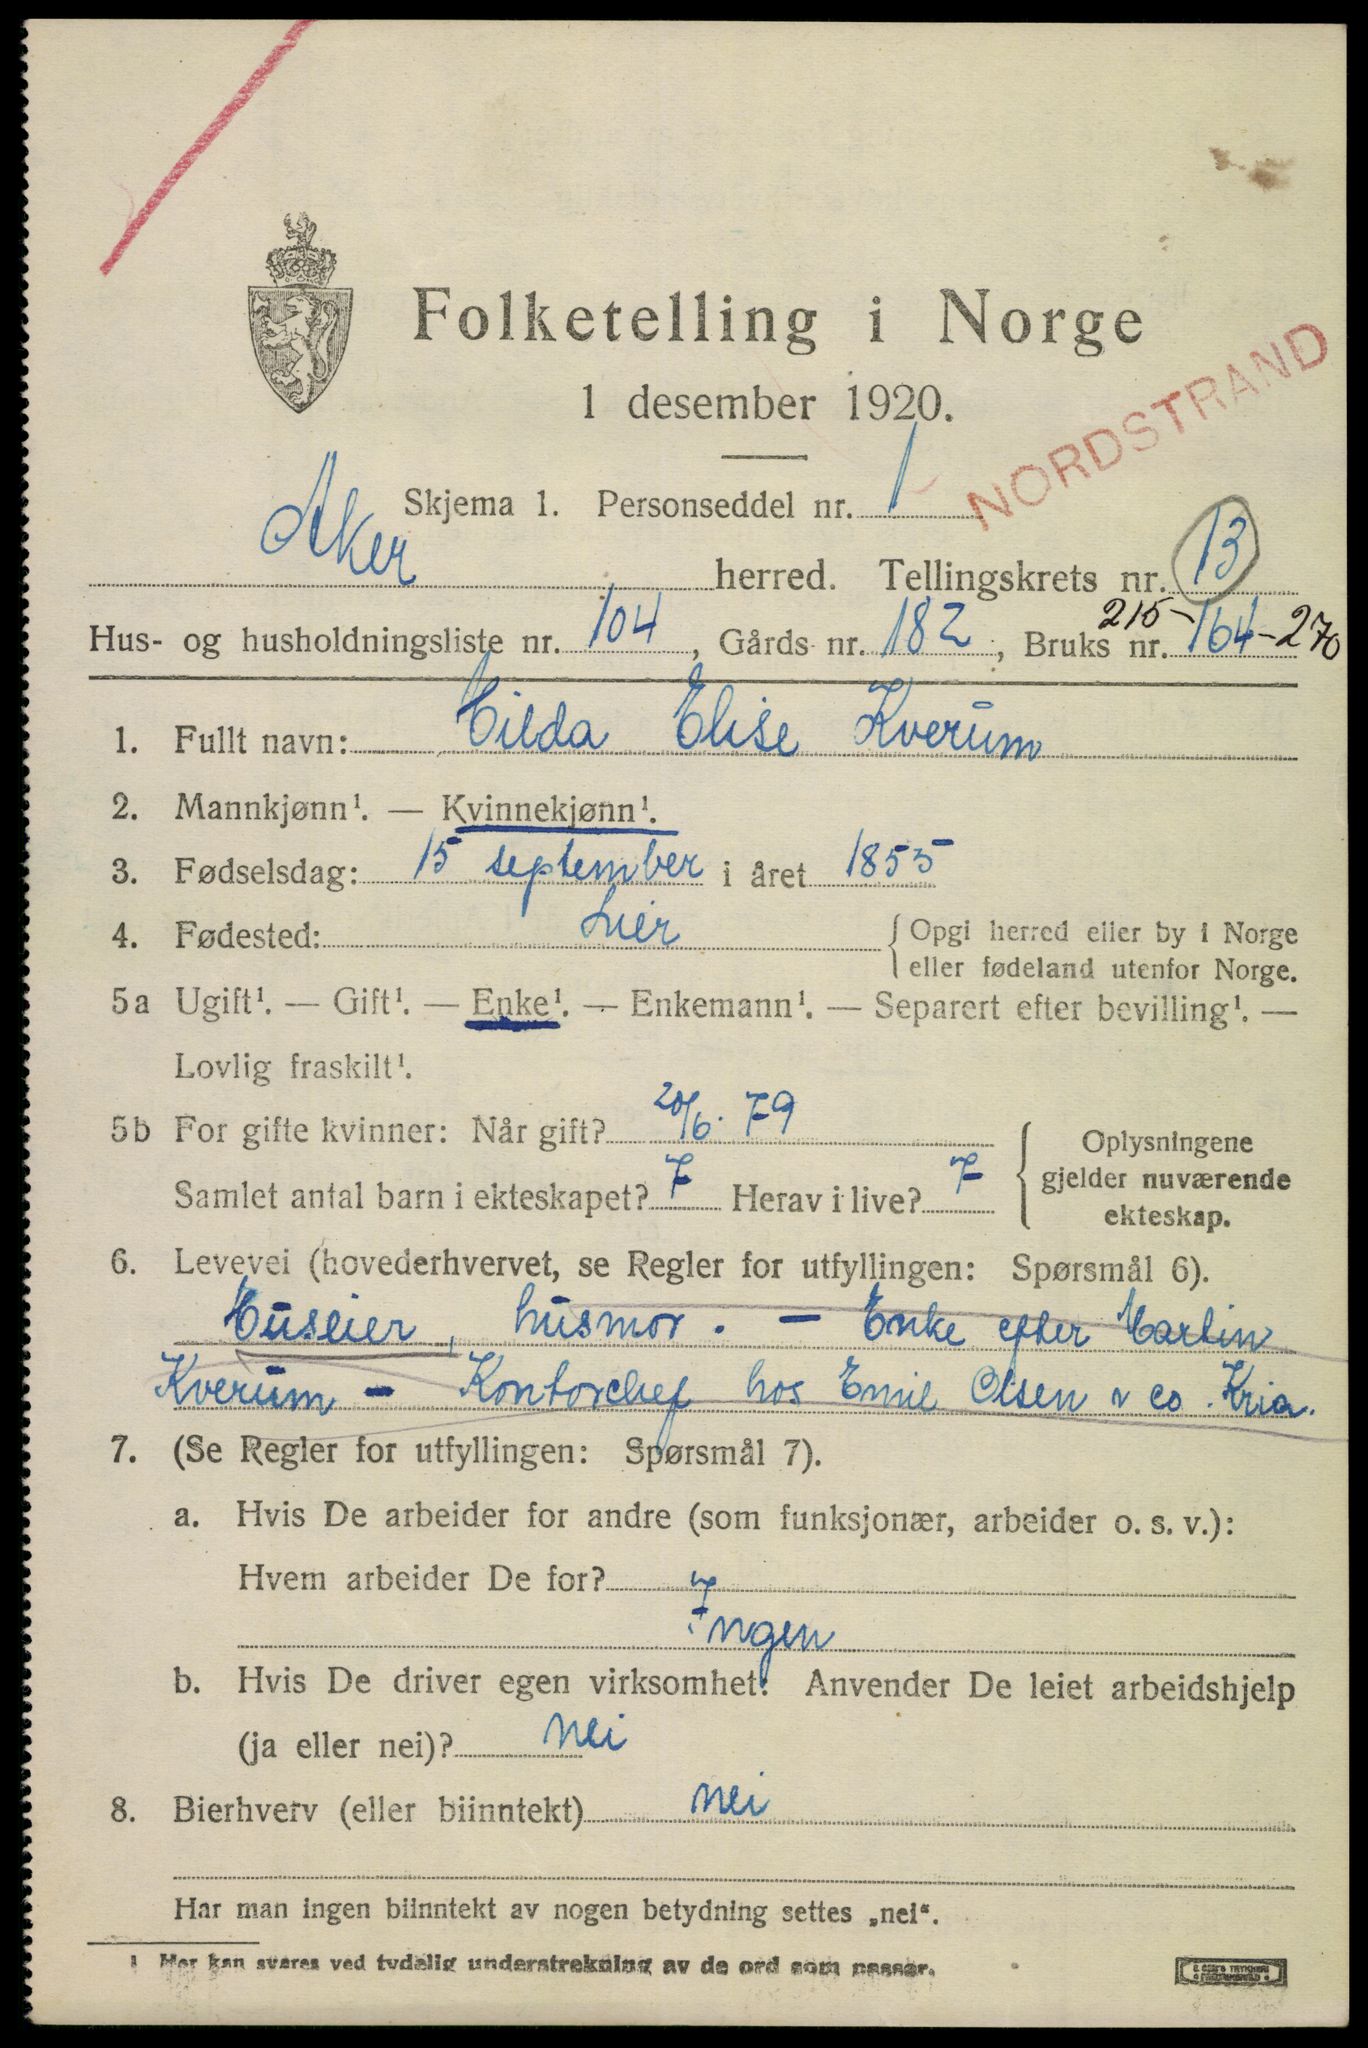 Folketelling i Norge
1 desember 1920.
NORDSTRAND
Skjema 1. Personseddel nr. 1
Aker herred. Tellingskrets nr. 13
Hus- og husholdningsliste nr. 104, Gårds nr. 182, Bruks nr. 215-164-270
1. Fullt navn: Hilda Elise Kverum
2. Mannkjønn¹. — Kvinnekjønn¹.
3. Fødselsdag: 15 september i året 1855
4. Fødested: Lier { Opgi herred eller by i Norge
eller fødeland utenfor Norge.
5a Ugift¹. — Gift¹. — Enke¹. — Enkemann¹. — Separert efter bevilling¹. —
Lovlig fraskilt¹.
5b For gifte kvinner: Når gift? 20/6. 79
Samlet antal barn i ekteskapet? 7 Herav i live? 7
{ Oplysningene
gjelder nuværende
ekteskap.
6. Levevei (hovederhvervet, se Regler for utfyllingen: Spørsmål 6).
Huseier, husmor. — Enke efter Martin
Kverum — Kontorchef hos Emil Olsen & co. Kria.
7. (Se Regler for utfyllingen: Spørsmål 7).
a. Hvis De arbeider for andre (som funksjonær, arbeider o. s. v.):
Hvem arbeider De for?
Ingen
b. Hvis De driver egen virksomhet: Anvender De leiet arbeidshjelp
(ja eller nei)? nei
8. Bierhverv (eller biinntekt) nei
Har man ingen biinntekt av nogen betydning settes „nei“.
1 Her kan svares ved tydelig understrekning av de ord som passer.